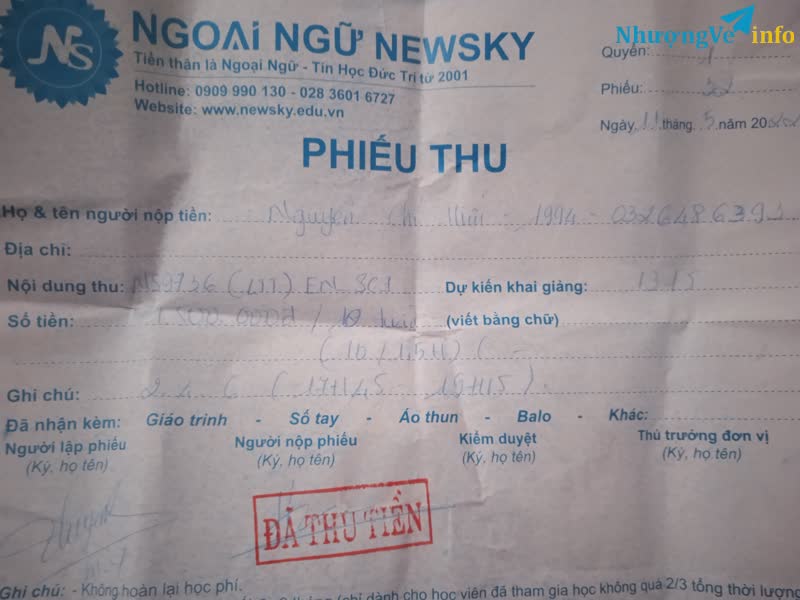 NhượngVé info
NS
NGOẠI NGỮ NEWSKY
Tiền thân là Ngoại Ngữ - Tin Học Đức Trí từ 2001
Hotline: 0909 990 130 - 028 3601 6727
Website: www.newsky.edu.vn
Quyển:
Phiếu: 22
Ngày 11 tháng 5 năm 2020
PHIẾU THU
Họ & tên người nộp tiền: Nguyễn Chí - 1994 -
Địa chỉ:
Nội dung thu: NS9736 (LTT) EN SC1 Dự kiến khai giảng: 13/5
Số tiền: 1.500.000đ / 10 (viết bằng chữ)
Ghi chú: 2.4.6 (17H45 - 19H15).
Đã nhận kèm: Giáo trình - Sổ tay - Áo thun - Balo - Khác:
Người lập phiếu Người nộp phiếu Kiểm duyệt Thủ trưởng đơn vị
(Ký, họ tên) (Ký, họ tên) (Ký, họ tên) (Ký, họ tên)
ĐÃ THU TIỀN
Ghi chú: - Không hoàn lại học phí.
dành cho học viên đã tham gia học không quá 2/3 tổng thời lượng